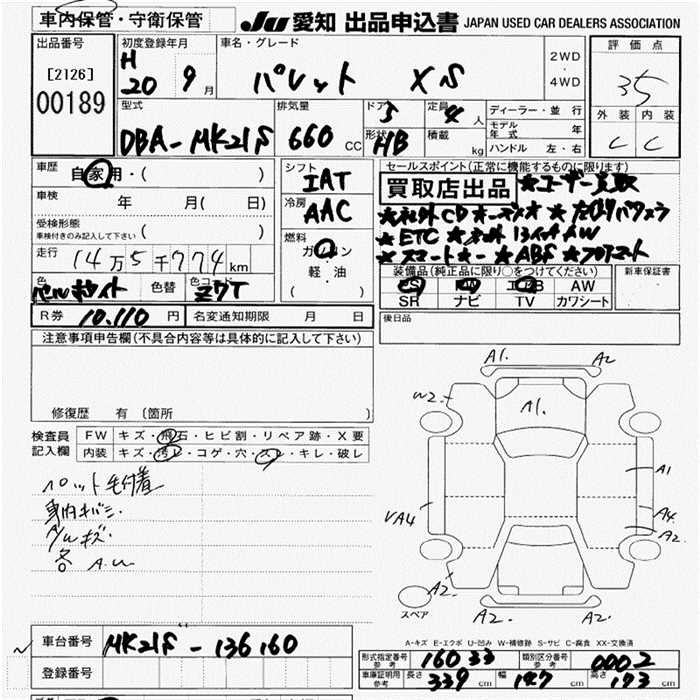 車内保管・守衛保管
JU 愛知 出品申込書 JAPAN USED CAR DEALERS ASSOCIATION
出品番号
[2126]
00189
初度登録年月
H
20 9 月
車名・グレード
パレット XS
2WD
・
4WD
評価点
3.5
外装 内装
C C
型式
DBA-MK21S
排気量
660 CC
ドア
5
形状
HB
定員
4 人
積載
kg
ディーラー・並 行
モデル年式 年
ハンドル 左・右
車歴 自家用・( )
車検 年 月( 日)
受検形態
車検付きのみ記入して下さい ( )
走行 14万5千774km
色 パールホワイト
色替
色コード Z7T
シフト
IAT
冷房
AAC
燃料
ガソリン
軽・油
( )
セールスポイント(正常に機能するものに限ります)
買取店出品
★ユーザー買取
★社外CDオーディオ
★ETC
★スマートキー ★ABS
装備品(純正品に限り○をつけてください)
PS PW エアB AW
SR ナビ TV カワシート
新車保証書
後日品
R券 10.110 円
名変通知期限 月 日
注意事項申告欄(不具合内容等は具体的に記入して下さい)
修復歴 有 (箇所 )
検査員記入欄
FW キズ・飛石・ヒビ割・リペア跡・X要
内装 キズ・汚レ・コゲ・穴・スレ・キレ・破レ
ペット毛付着
車内キバミ
各 A.U
A1. A2
W2.
A1.
A1
VA4
A4
A2.
A2.
スペア
A2. A2.
A-キズ E-エクボ U-凹み W-補修跡 S-サビ C-腐食 XX-交換済
車台番号 MK21S-136160
登録番号
形式指定番号 参考 16033
類別区分番号 参考 0002
車庫証明用 参考 長さ 339 cm 幅 147 cm 高さ 173 cm